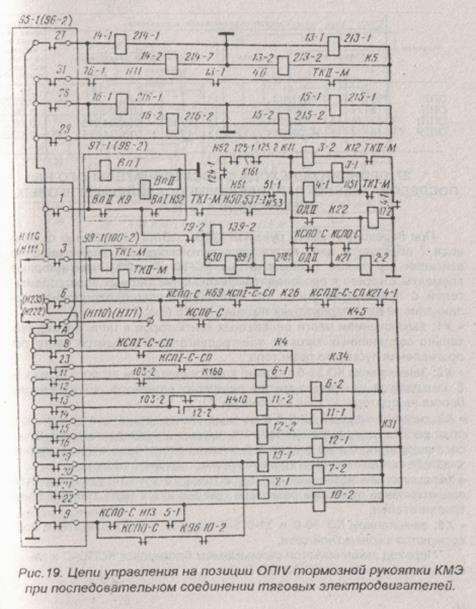 95-1(96-2)
27 14-1 214-1 13-1 213-1
14-2 214-2 13-2 213-2 К5
31 13-1 46 ТКII-М
28 16-1 216-1 15-1 215-1
16-2 216-2 15-2 215-2
29
97-1(98-2) Н52 125-1 125-2 К11 3-2 К12 ТКII-М
ВпI 124-1 К161 3-1
ВпII Н51 51-1 4-1 Н51 ТКI-М
1 ВпII К9 ВпI Н52 ТКI-М Н50 537-1 Н53 ОДII К22
19-2 139-2 КСПО-С КСПО-С
Н110 (Н111) 3 99-1(100-2)
ТКI-М К30 ОДII К21 2-2
ТКII-М
(Н235) (Н222) Б (Н110)(Н111) КСПО-С Н69 КСПI-С-СП К26 КСПII-С-СП К27 4-1
А КСПО-С К45
8 КСПI-С-СП К4
23 КСПI-С-СП К34
11 103-2 К160 6-1
12 6-2
13 103-2 Н410 11-2
14 12-2 11-1
15 12-2 К31
16 12-1
19 13-1
20 7-2
21 7-1
22 10-2
9 КСПО-С Н13 5-1
КСПО-С К96 10-2
Рис.19. Цепи управления на позиции ОПIV тормозной рукоятки КМЭ
при последовательном соединении тяговых электродвигателей.